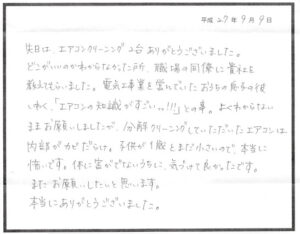 平成27年9月9日
先日は、エアコンクリーニング2台ありがとうございました。
どこがいいのかわからなかった所、職場の同僚に貴社を
教えてもらいました。電気工事業を営んでいたおうちの息子の彼
いわく、「エアコンの知識がすごいっ!!!」との事。よくわからない
ままお願いしましたが、分解クリーニングしていただいたエアコンは、
内部がカビだらけ。子供が1歳とまだ小さいので、本当に
怖いです。体に害がでないうちに、気づけて良かったです。
またお願いしたいと思います。
本当にありがとうございました。